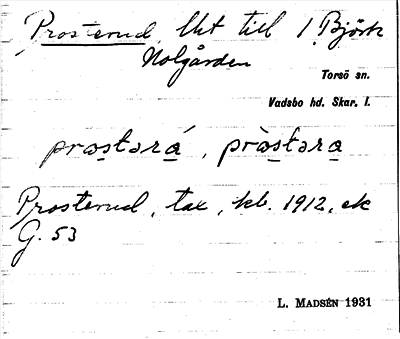 Prosterud, lht till 1 Björk
Nolgården
Torsö sn.
Vadsbo hd. Skar. l.
prɷstərá, prɷ̀stəra
Prosterud, tax, kb. 1912, ek
G. 53
L. MADSÉN 1931